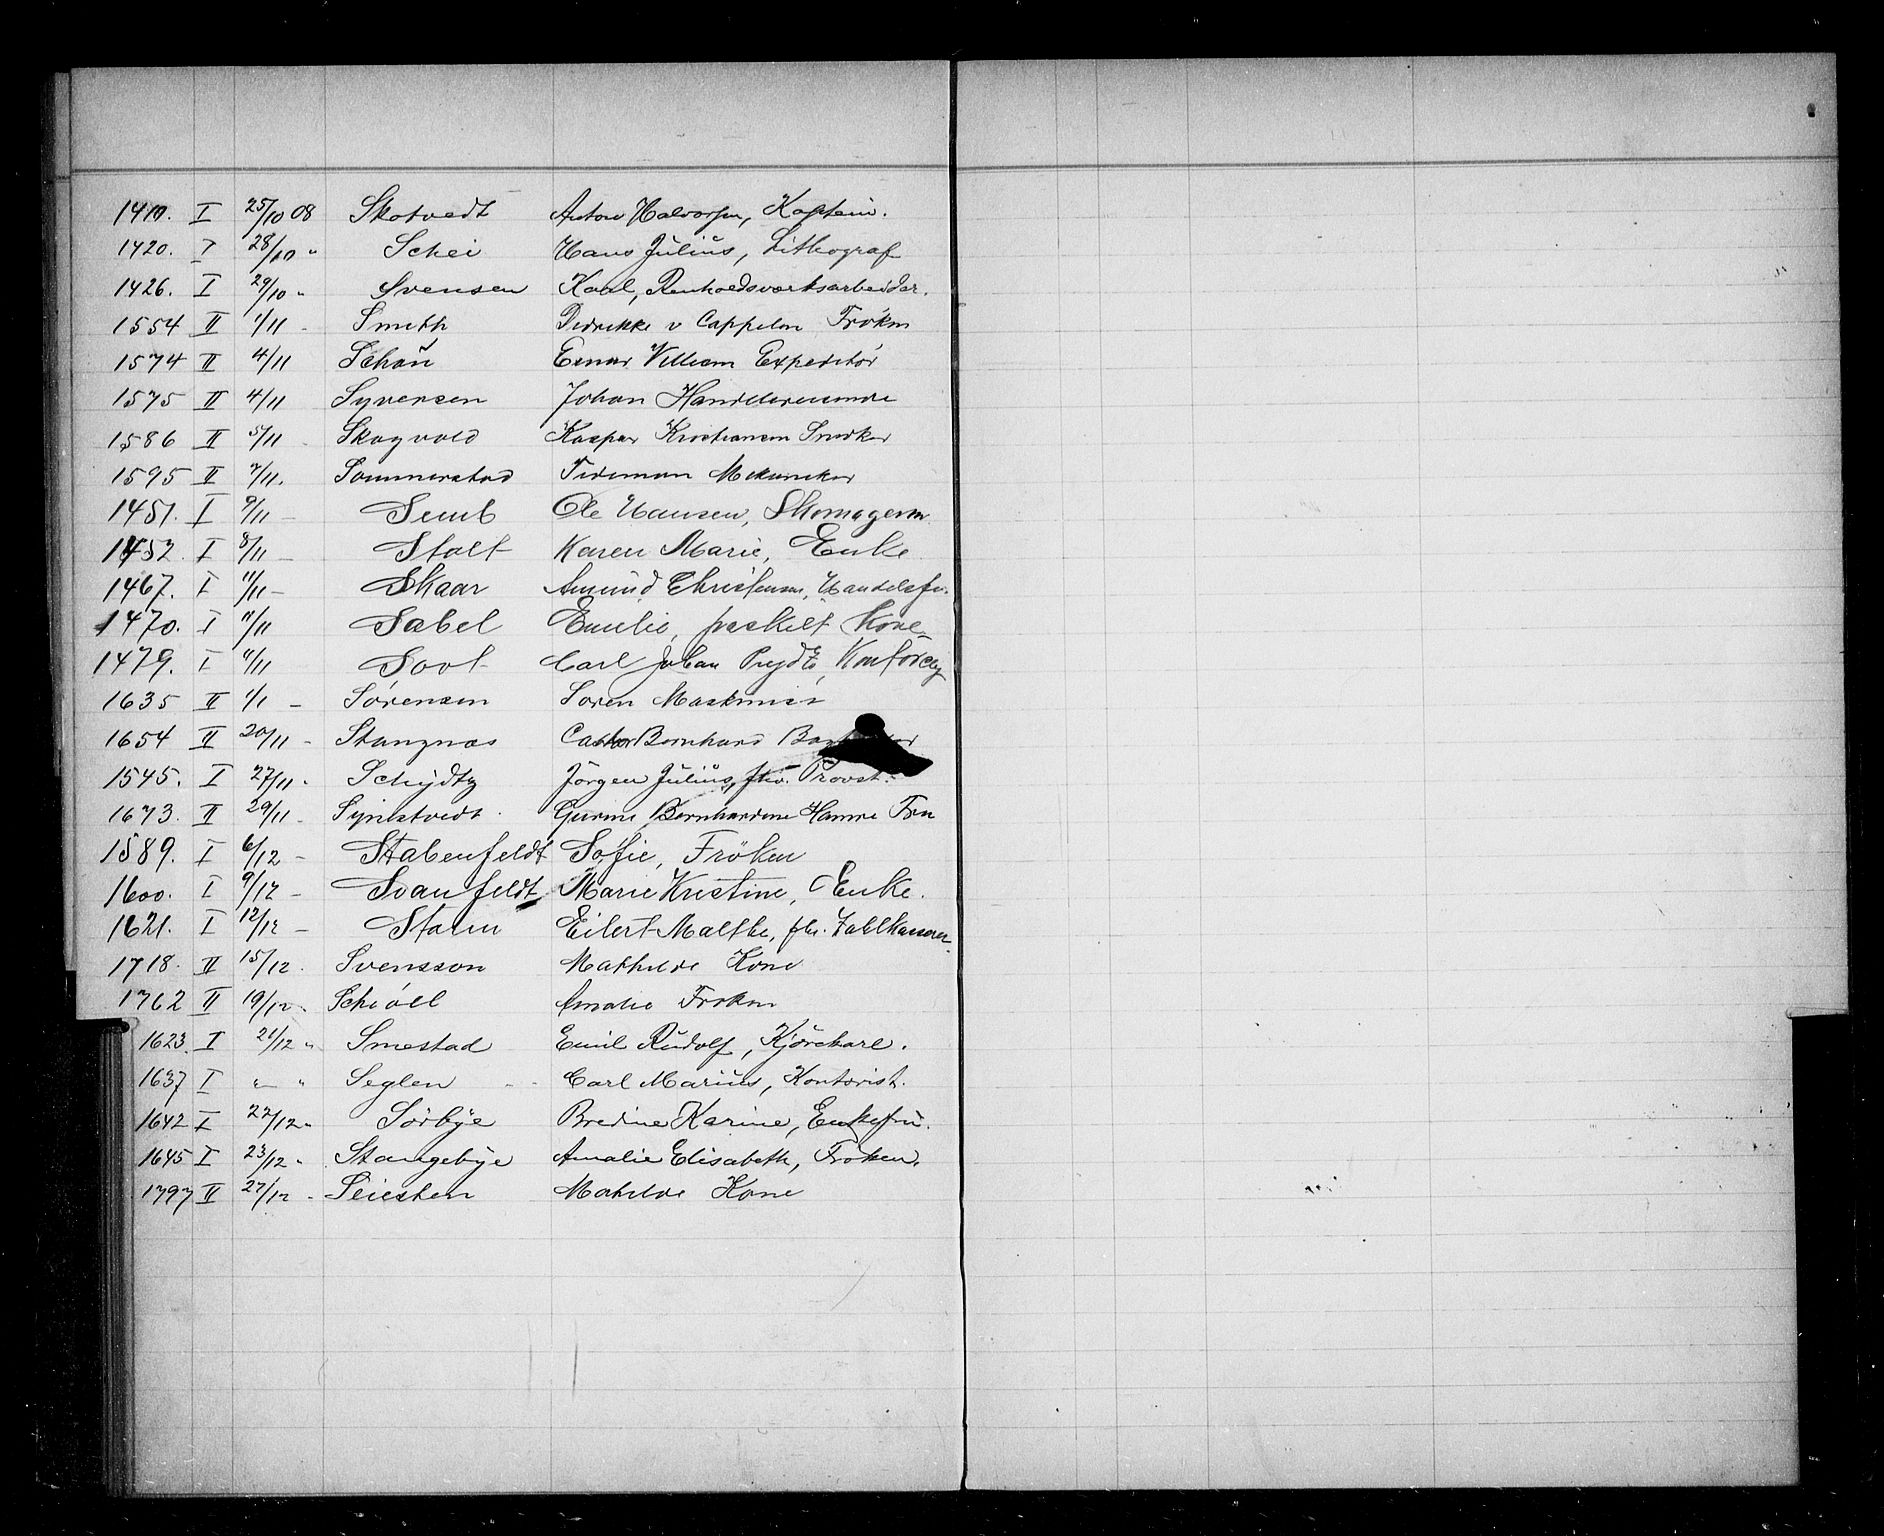 1410. I 25/10 08 Skotvedt Anton Halvorsen, Kaptein.
1420. I 28/10 " Schei Hans Julius, Lithograf
1426. I 29/10 " Svensen Karl, Renholdsværksarbeider.
1554 II 1/11 - Smith Didrikke v Cappelen Frøken
1574 II 4/11 Schøn Einar Villiam Expeditør
1575 II 4/11 Syversen Johan Handelsreisende
1586 II 5/11 - Skogvold Kaspar Kristiansen Snedker
1595 II 7/11. Sommerstad Tideman Mekaniker
1451. I 9/11 - Semb Ole Hansen, Skomagerm
1452. I 8/11 - Stolt Karen Marie, Enke
1467. I 11/11 - Skaar Amund Christensen, Handelsfu.
1470. I 11/11 Sabel Emilie, fraskilt Kone
1479. I 11/11 Soot Carl Johan Prydtz,
1635 II 1/1 - Sørensen Søren Maskinist
1654 II 20/11 - Stangnæs Bernhard
1545. I 27/11 " Schydtz Jörgen Julius, fhv. Provst.
1673. II 29/11 - Gurine Bernhardine Hamre Fru
1589. I 6/12 - Stabenfeldt Sofie, Fröken
1600. I 9/12 - Svanfeldt, Marie Kristine, Enke.
1621. I 12/12 - Storm Eilert Malthe, fhv.
1718. II 15/12. Svensson Mathilde Kone
1762 II 19/12 - Schiøll Amalie Frøken
1623. I 21/12 " Smestad Emil Rudolf, Kjörekarl.
1637 I " " Seglen Carl Marius, Kontorist.
1642 I 22/12 " Sörbye Bredine Karine, Enkefru.
1645 I 23/12 " Stangebye Amalie Elisabeth, Froken.
1797 II 27/12 - Seiesten Mathilde Kone